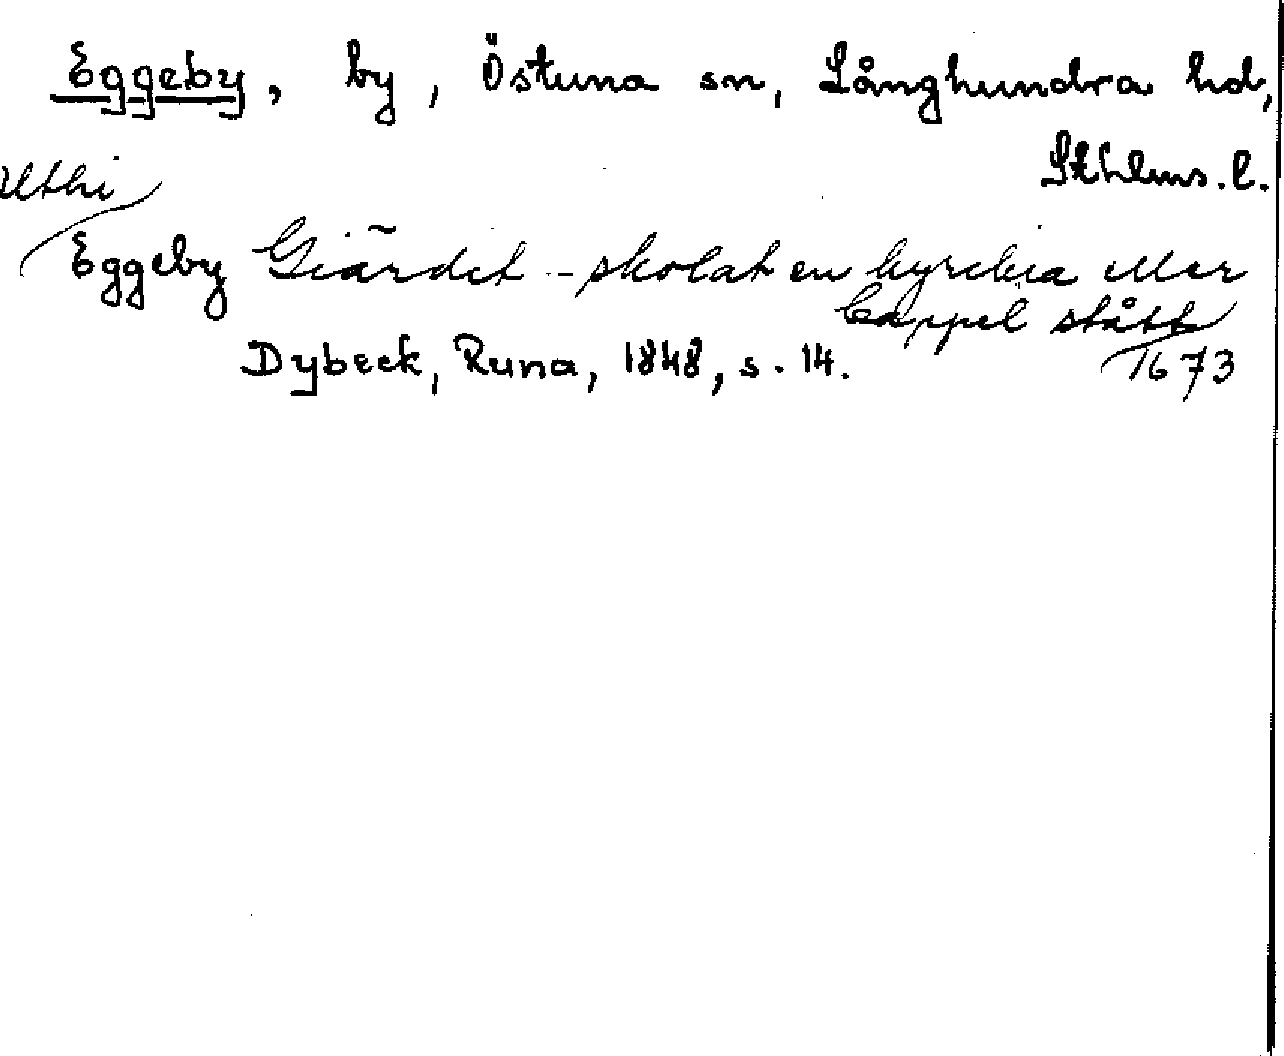 Eggeby, by, Östuna sn, Långhundra hd,
Sthlms. l.
Uthi
Eggeby Giärdet - skolat en kyrckia eller
Cappel stått
Dybeck, Runa, 1848, s. 14.
1673